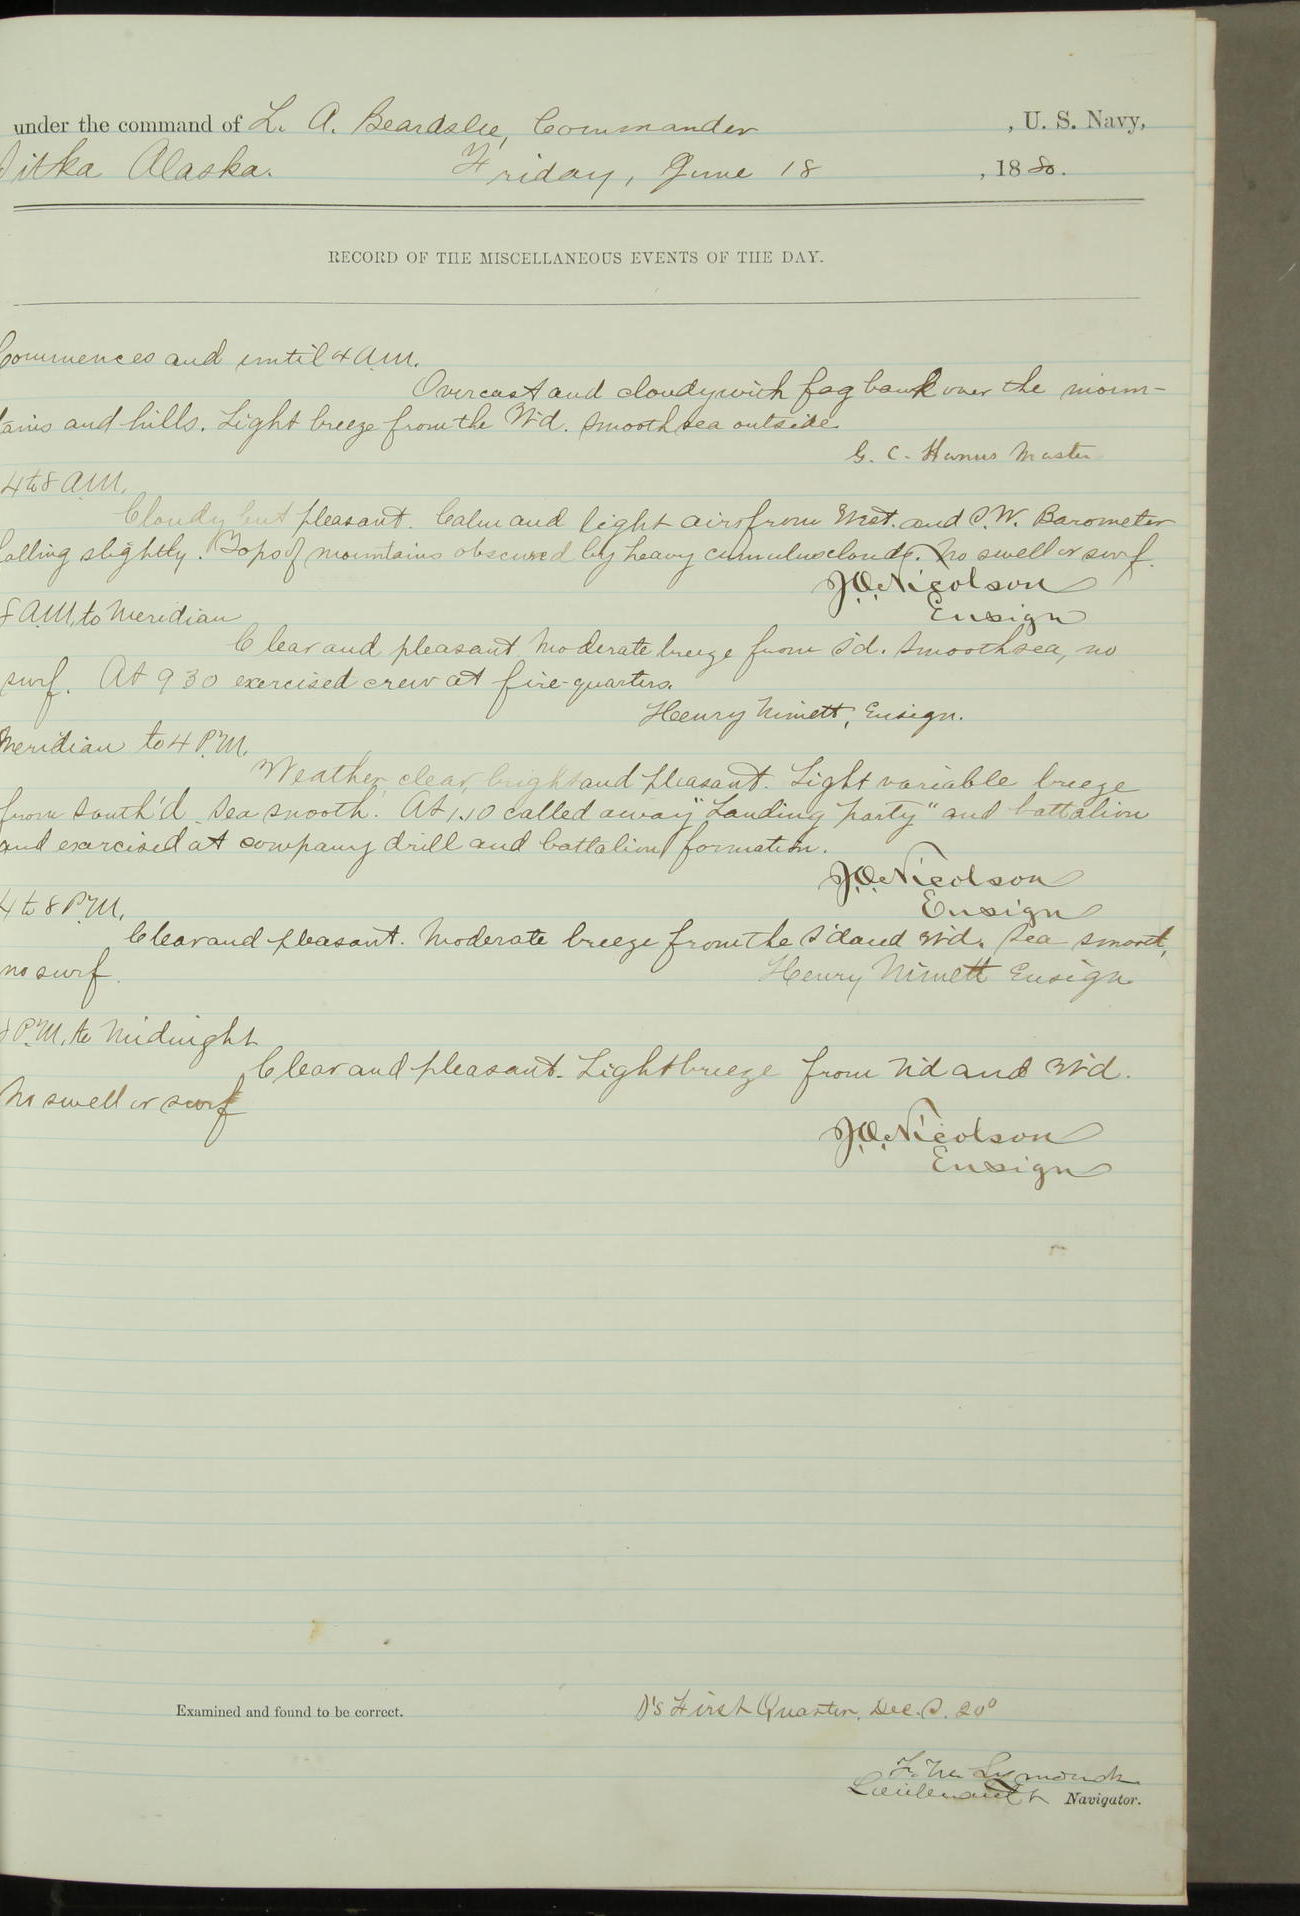 under the command of L. A. Beardslee, Commander , U. S. Navy,
Sitka Alaska. Friday, June 18 , 1880.
RECORD OF THE MISCELLANEOUS EVENTS OF THE DAY.
Commences and until 4 A.M.
Overcast and cloudy with fog bank over the moun-
tains and hills. Light breeze from the W'd. Smooth sea outside.
G. C. Hanus Master
4 to 8 A.M.
Cloudy but pleasant. Calm and light airs from West. and S.W. Barometer
falling slightly. Tops of mountains obscured by heavy cumulus clouds. No swell or surf.
J.O. Nicolson
Ensign
8 A.M. to Meridian
Clear and pleasant. Moderate breeze from S'd. Smooth sea, no
surf. At 9 30 exercised crew at fire-quarters.
Henry Minett, Ensign.
Meridian to 4 P.M.
Weather clear, bright and pleasant. Light variable breeze
from South'd. Sea smooth. At 1.10 called away "Landing party" and battalion
and exercised at company drill and battalion formation.
J.O. Nicolson
Ensign
4 to 8 P.M.
Clear and pleasant. Moderate breeze from the S'd and W'd. Sea smooth,
no surf.
Henry Minett Ensign
8 P.M. to Midnight
Clear and pleasant. Light breeze from N'd and W'd.
No swell or surf
J.O. Nicolson
Ensign
Examined and found to be correct.
D's First Quarter, Dec. S. 20°
Lieutenant Navigator.